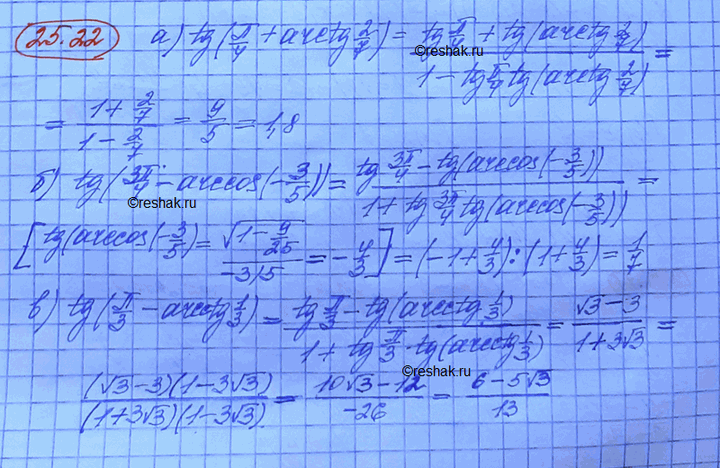 25.22 а) tg(π/4 + arctg 2/7) = (tg π/4 + tg(arctg 2/7)) / (1 - tg π/4 tg(arctg 2/7)) =
©reshak.ru
= (1 + 2/7) / (1 - 2/7) = 9/5 = 1,8
б) tg(3π/4 - arccos(-3/5)) = (tg 3π/4 - tg(arccos(-3/5))) / (1 + tg 3π/4 tg(arccos(-3/5))) =
©reshak.ru
[tg(arccos(-3/5) = √(1 - 9/25) / (-3/5) = -4/3] = (-1 + 4/3) : (1 + 4/3) = 1/7
в) tg(π/3 - arcctg 1/3) = (tg π/3 - tg(arcctg 1/3)) / (1 + tg π/3 · tg(arcctg 1/3)) = (√3 - 3) / (1 + 3√3) =
©reshak.ru
(√3 - 3)(1 - 3√3) / (1 + 3√3)(1 - 3√3) = (10√3 - 12) / -26 = (6 - 5√3) / 13